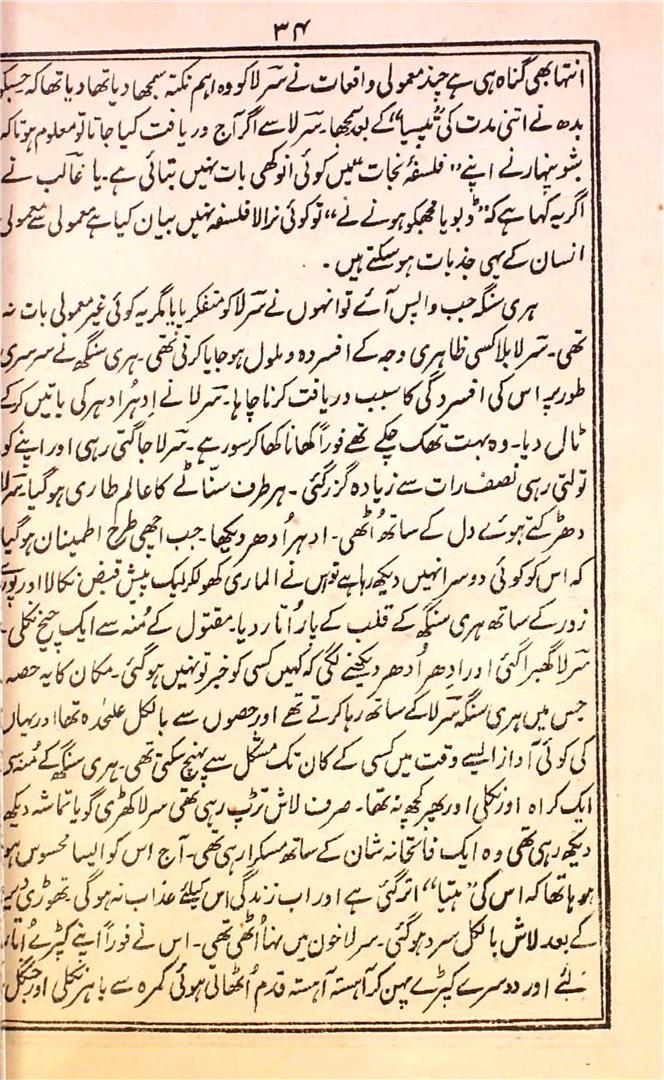 ۳۴
انتہا بھی گناہ ہی ہے چند معمولی واقعات نے سرلا کو وہ اہم نکتہ سمجھا دیا تھا دیا تھا کہ جسکو
بدھ نے اتنی مدت کی "تپسیا" کے بعد سمجھا۔ سرلا سے اگر آج دریافت کیا جاتا تو معلوم ہوتا کہ
شوپنہار نے اپنے "فلسفۂ نجات" میں کوئی انوکھی بات نہیں بتائی ہے۔ یا غالب نے
اگر یہ کہا ہے کہ "ڈبویا مجھکو ہونے نے" تو کوئی نرالا فلسفہ نہیں بیان کیا ہے معمولی سے معمولی
انسان کے یہی جذبات ہو سکتے ہیں۔
ہری سنگہ جب واپس آئے تو انہوں نے سرلا کو متفکر پایا مگر یہ کوئی غیر معمولی بات نہ
تھی۔ سرلا بلا کسی ظاہری وجہ کے افسردہ و ملول ہو جایا کرتی تھی۔ ہری سنگھ نے سرسری
طور پر اس کی افسردگی کا سبب دریافت کرنا چاہا۔ سرلا نے اِدہر اُدہر کی باتیں کر کے
ٹال دیا۔ وہ بہت تھک چکے تھے فوراً کھانا کھا کر سو رہے۔ سرلا جاگتی رہی اور اپنے کو
تولتی رہی نصف رات سے زیادہ گزر گئی۔ ہر طرف سنّاٹے کا عالم طاری ہو گیا۔ سرلا
دھڑکتے ہوئے دل کے ساتھ اُٹھی۔ ادہر اُدھر دیکھا۔ جب اچھی طرح اطمینان ہو گیا
کہ اس کو کوئی دوسرا نہیں دیکھ رہا ہے تو اس نے الماری کھولکر ایک پیش قبض نکالا اور پورے
زور کے ساتھ ہری سنگھ کے قلب کے پار اُتار دیا۔ مقتول کے مُنہ سے ایک چیخ نکلی۔
سرلا گھبرا گئی اور اِدھر اُدھر دیکھنے لگی کہ کہیں کسی کو خبر تو نہیں ہو گئی۔ مکان کا یہ حصہ
جس میں ہری سنگہ سرلا کے ساتھ رہا کرتے تھے اور حصوں سے بالکل علیحدہ تھا اور یہاں
کی کوئی آواز ایسے وقت میں کسی کے کان تک مشکل سے پہنچ سکتی تھی۔ ہری سنگھ کے مُنہ سی
ایک کراہ اور نکلی اور پھر کچھ نہ تھا۔ صرف لاش تڑپ رہی تھی سرلا کھڑی گویا تماشہ دیکھ
دیکھ رہی تھی وہ ایک فاتحانہ شان کے ساتھ مسکرا رہی تھی۔ آج اس کو ایسا محسوس ہو
ہو ہا تھا کہ اس کی "ہتیا" اتر گئی ہے اور اب زندگی اس کیلئے عذاب نہ ہوگی۔ تھوڑی دیر
کے بعد لاش بالکل سرد ہو گئی۔ سرلا خون میں نہا اُٹھی تھی۔ اس نے فوراً اپنے کپڑے اُتار
لئے اور دوسرے کپڑے پہن کر آہستہ آہستہ قدم اُٹھاتی ہوئی کمرہ سے باہر نکلی اور جنگل